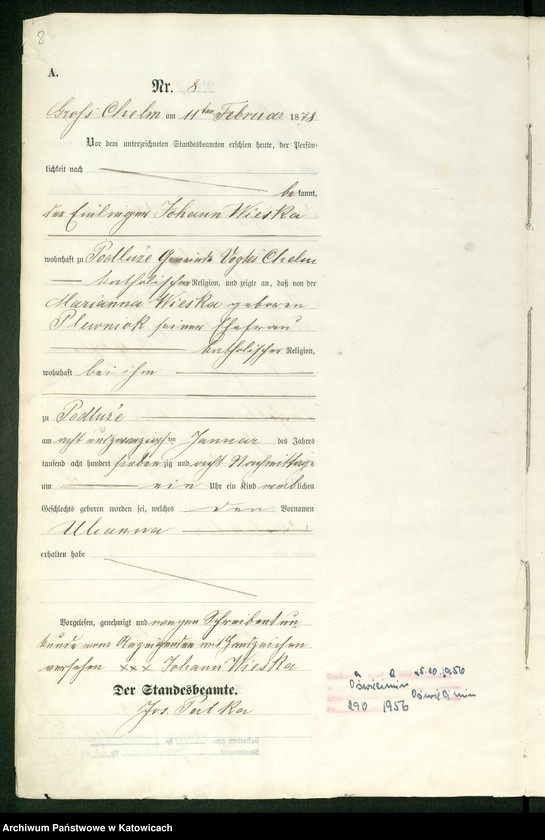 8
A.
Nr. 8
Groß Chelm am 11ten Februar 1878
Vor dem unterzeichneten Standesbeamten erschien heute, der Persön-
lichkeit nach
bekannt,
der Einlieger Johann Wieska
wohnhaft zu Podluże Gemeinde Vogtei Chelm
katholischer Religion, und zeigte an, daß von der
Marianna Wieska geboren
Plewniok seiner Ehefrau
katholischer Religion,
wohnhaft bei ihm
zu Podluże
am acht und zwanzigsten Januar des Jahres
tausend acht hundert siebenzig und acht Nachmittags
um ein Uhr ein Kind weiblichen
Geschlechts geboren worden sei, welches den Vornamen
Julianna
erhalten habe
Vorgelesen, genehmigt und wegen Schreibensun
kunde vom Anzeigenden mit Handzeichen
versehen xxx Johann Wieska
Der Standesbeamte.
Jos.
25.10.1956
Oświęcim
Oświęcim
290 1956
Archiwum Państwowe w Katowicach